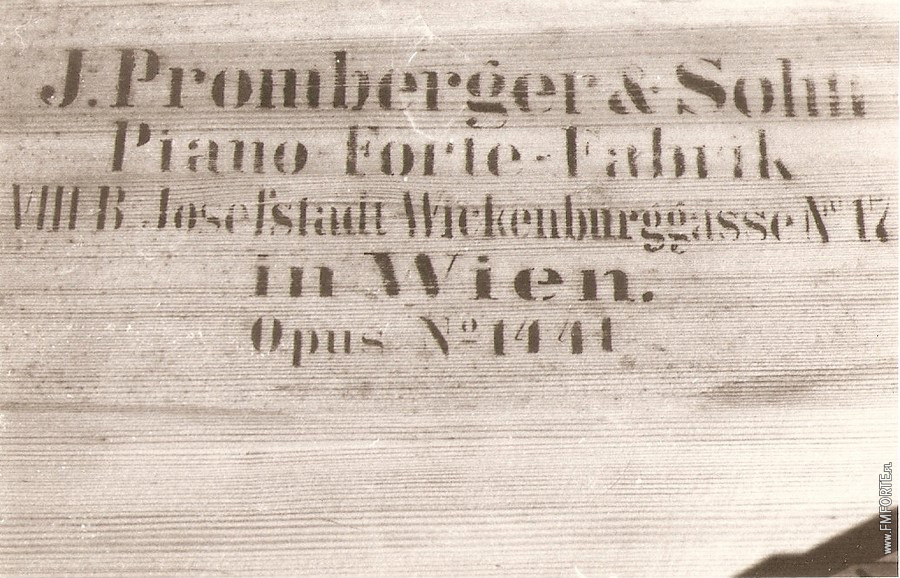 J. Promberger & Sohn
Piano-Forte-Fabrik
VIII B. Josefstadt Wickenburggasse Nº 17
in Wien.
Opus Nº 1441
www.FMFORTE.PL